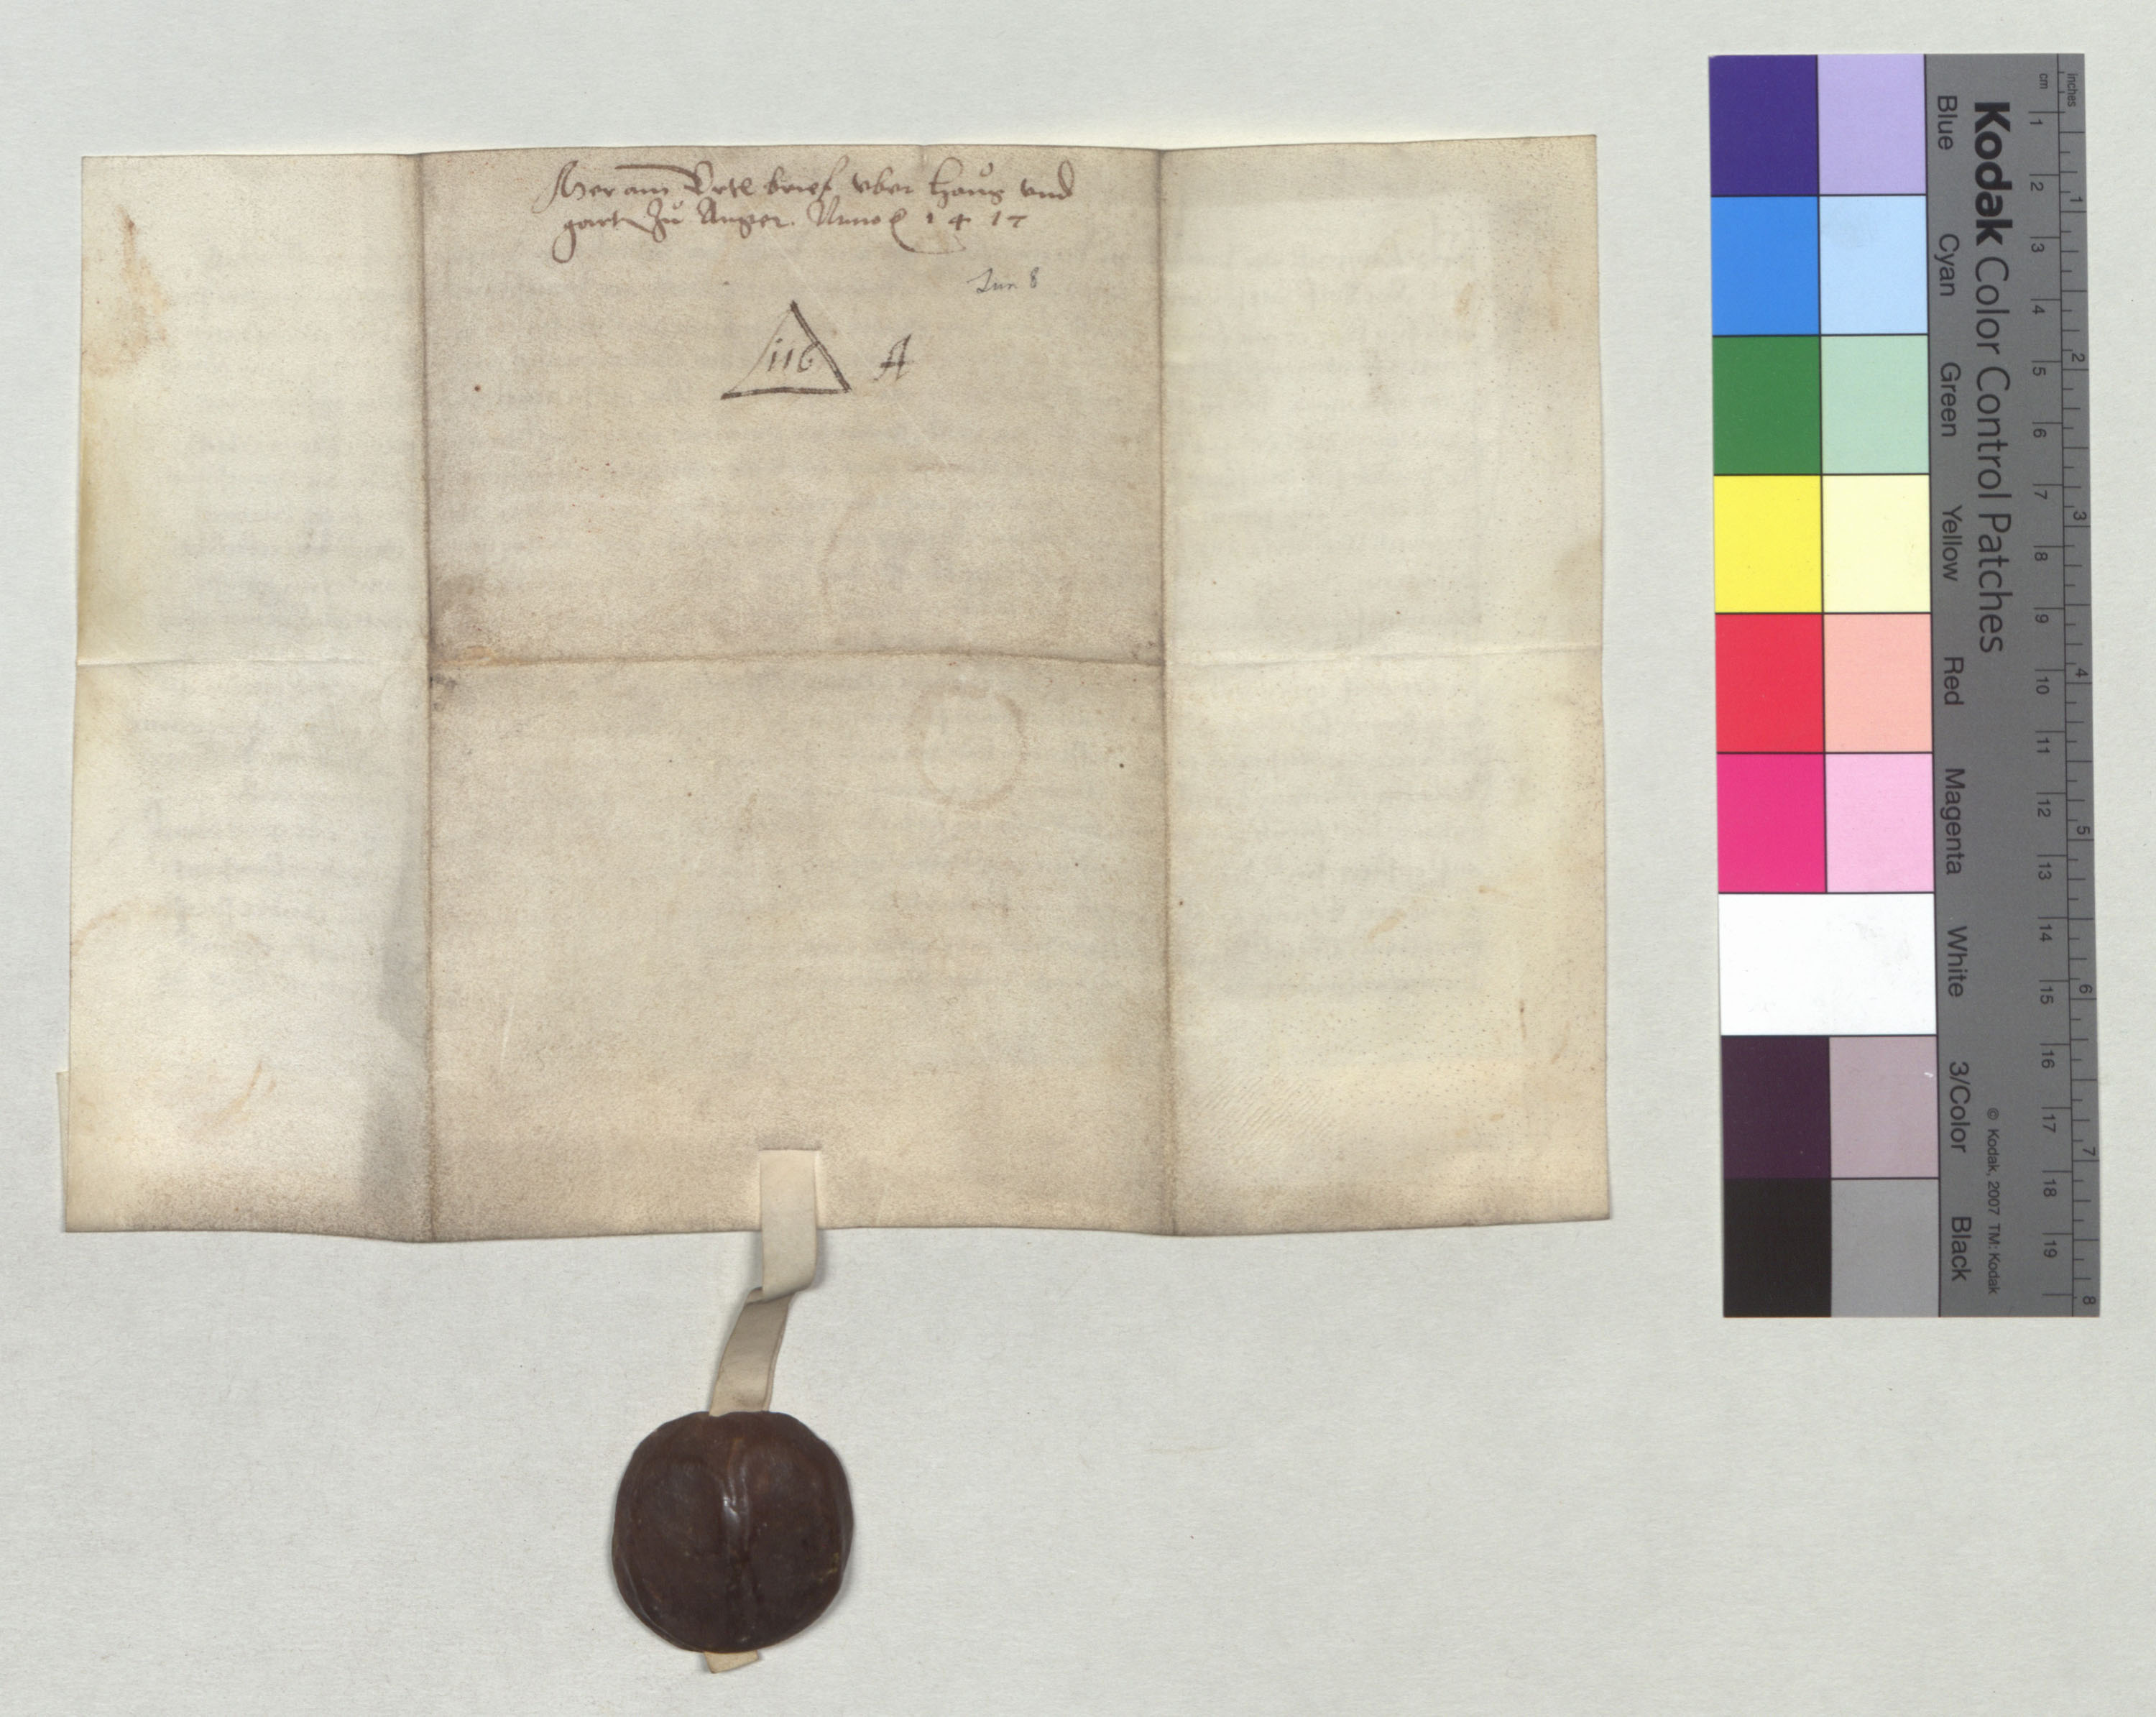 am Örtl brief vber Hauß vnd
gart Zu Anger. Anno 1417
Jun. 8
116 A
Kodak Color Control Patches
Blue Cyan Green Yellow Red Magenta White 3/Color Black
© Kodak, 2007 TM: Kodak
cm 1 2 3 4 5 6 7 8 9 10 11 12 13 14 15 16 17 18 19
inches 1 2 3 4 5 6 7 8